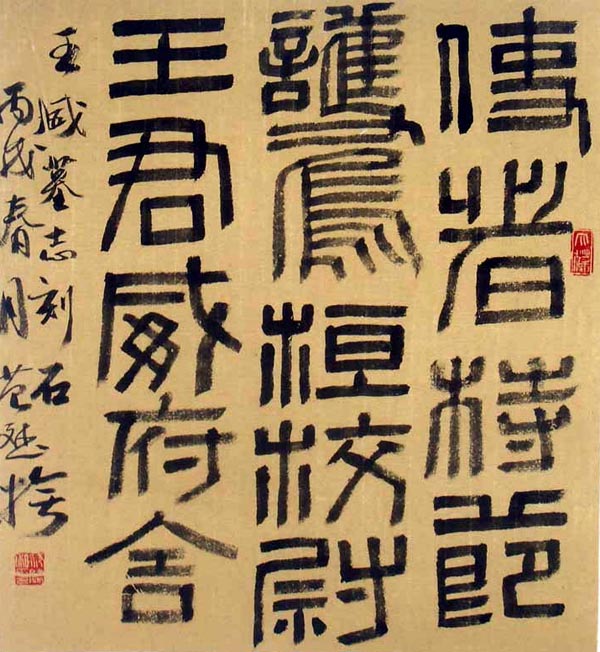 使者持節
護烏桓校尉
王君威府舍
王威墓志刻石
丙戌春月